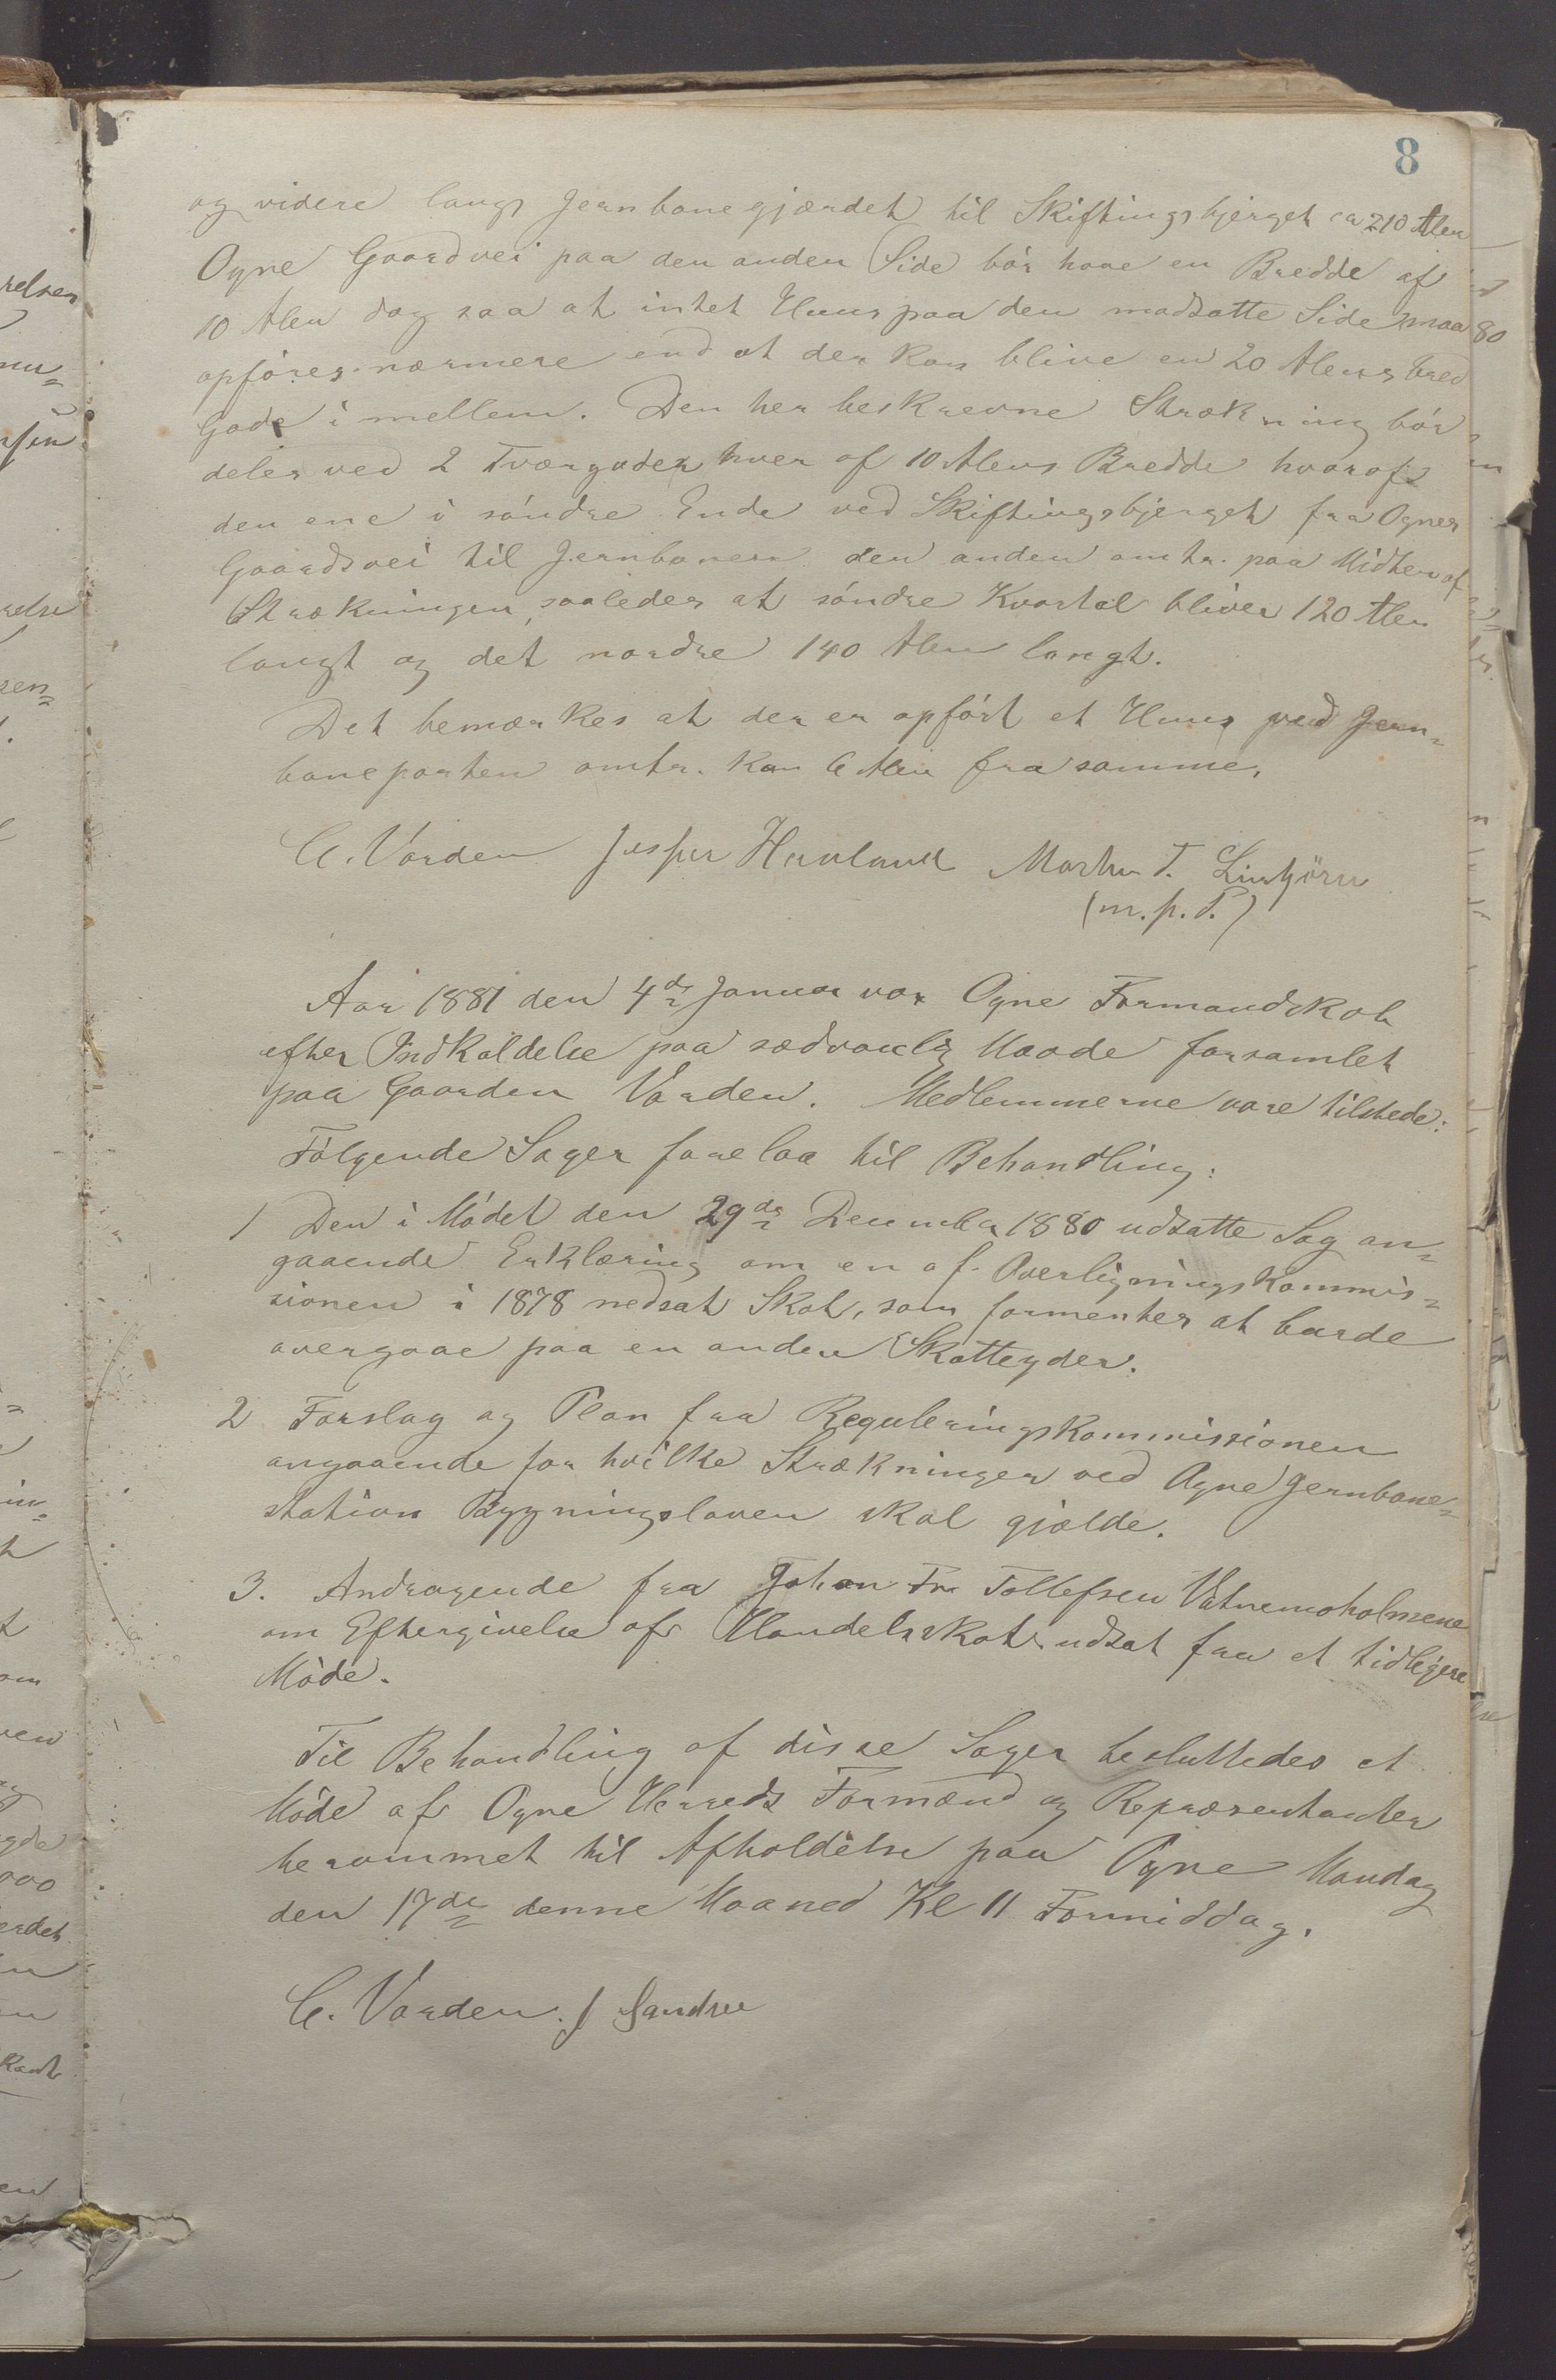 8
og videre langs Jernbanegjærdet til Skiftingsbjerget ca 210 Alen
Ogne Gaardvei paa den anden Side bör have en Bredde af
10 Alen dog saa at intet Huus paa den modsatte Side maa
opföres nærmere end at der kan blive en 20 Alens bred
Gade i mellem. Den her beskrevne Strækning bör
deles ved 2 Tværgader hver af 10 Alens Bredde hvoraf
den ene i söndre Ende ved Skiftingsbjerget fra Ognes
Gaardsvei til Jernbanen den anden omtr. paa Midten af
Strækningen, saaledes at söndre Kvartal bliver 120 Alen
langt og det nordre 140 Alen langt.
Det bemærkes at der er opfört et Huus ved Jern=
baneporten omtr. kun 6 Alen fra samme.
C. Varden Jesper Havland Marthin T. Lintjörn
(m. p. P.)
Aar 1881 den 4de Januar var Ogne Formandskab
efter Indkaldelse paa sædvanlig Maade forsamlet
paa Gaarden Varden. Medlemmerne vare tilstede:
Fölgende Sager forelaa til Behandling:
1 Den i Mödet den 29de December 1880 udsatte Sag an=
gaaende Erklæring om en af Overligningskommis=
sionen i 1878 nedsat Skat, som formentes at burde
overgaae paa en anden Skatteyder.
2 Forslag og Plan fra Reguleringskommissionen
angaaende for hvilke Strækninger ved Ogne Jernbane=
station Bygningsloven skal gjælde.
3. Andragende fra Johan Tollefsen Vatnemoholmene
om Eftergivelse af Handelsskat udsat fra et tidligere
Möde.
Til Behandling af disse Sager besluttedes et
Möde af Ogne Herreds Formænd og Repræsentanter
berammet til Afholdelse paa Ogne Mandag
den 17de denne Maaned Kl 11 Formiddag.
C. Varden. J Sandsee